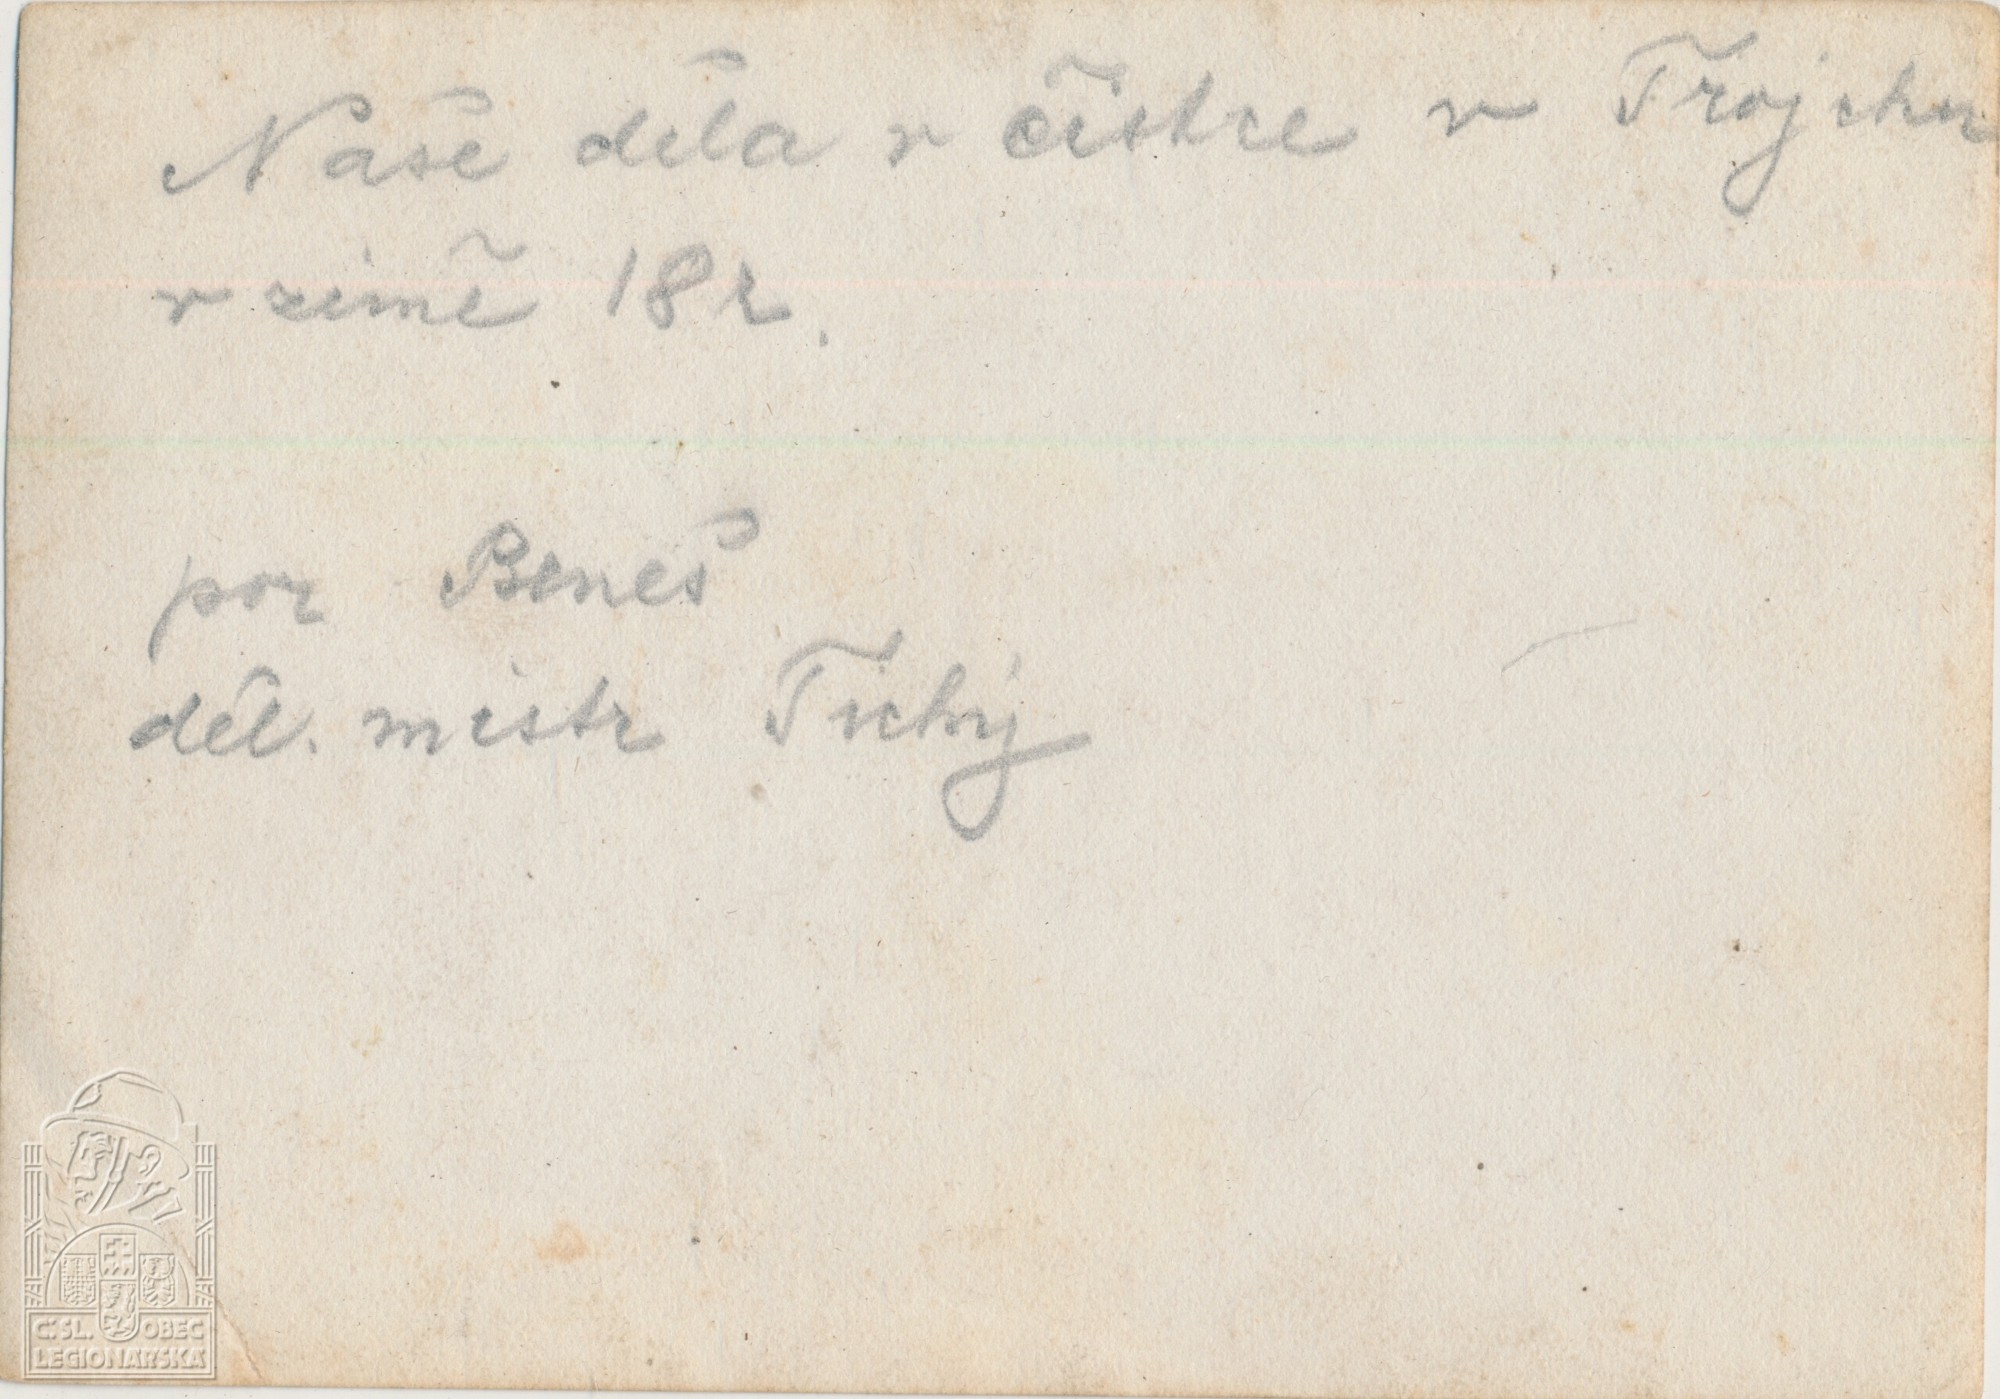 Naše děla v čistce v Trojcku
v zimě 18 r.
por Beneš
děl. mistr Tichý
Č.SL. OBEC
LEGIONÁŘSKÁ